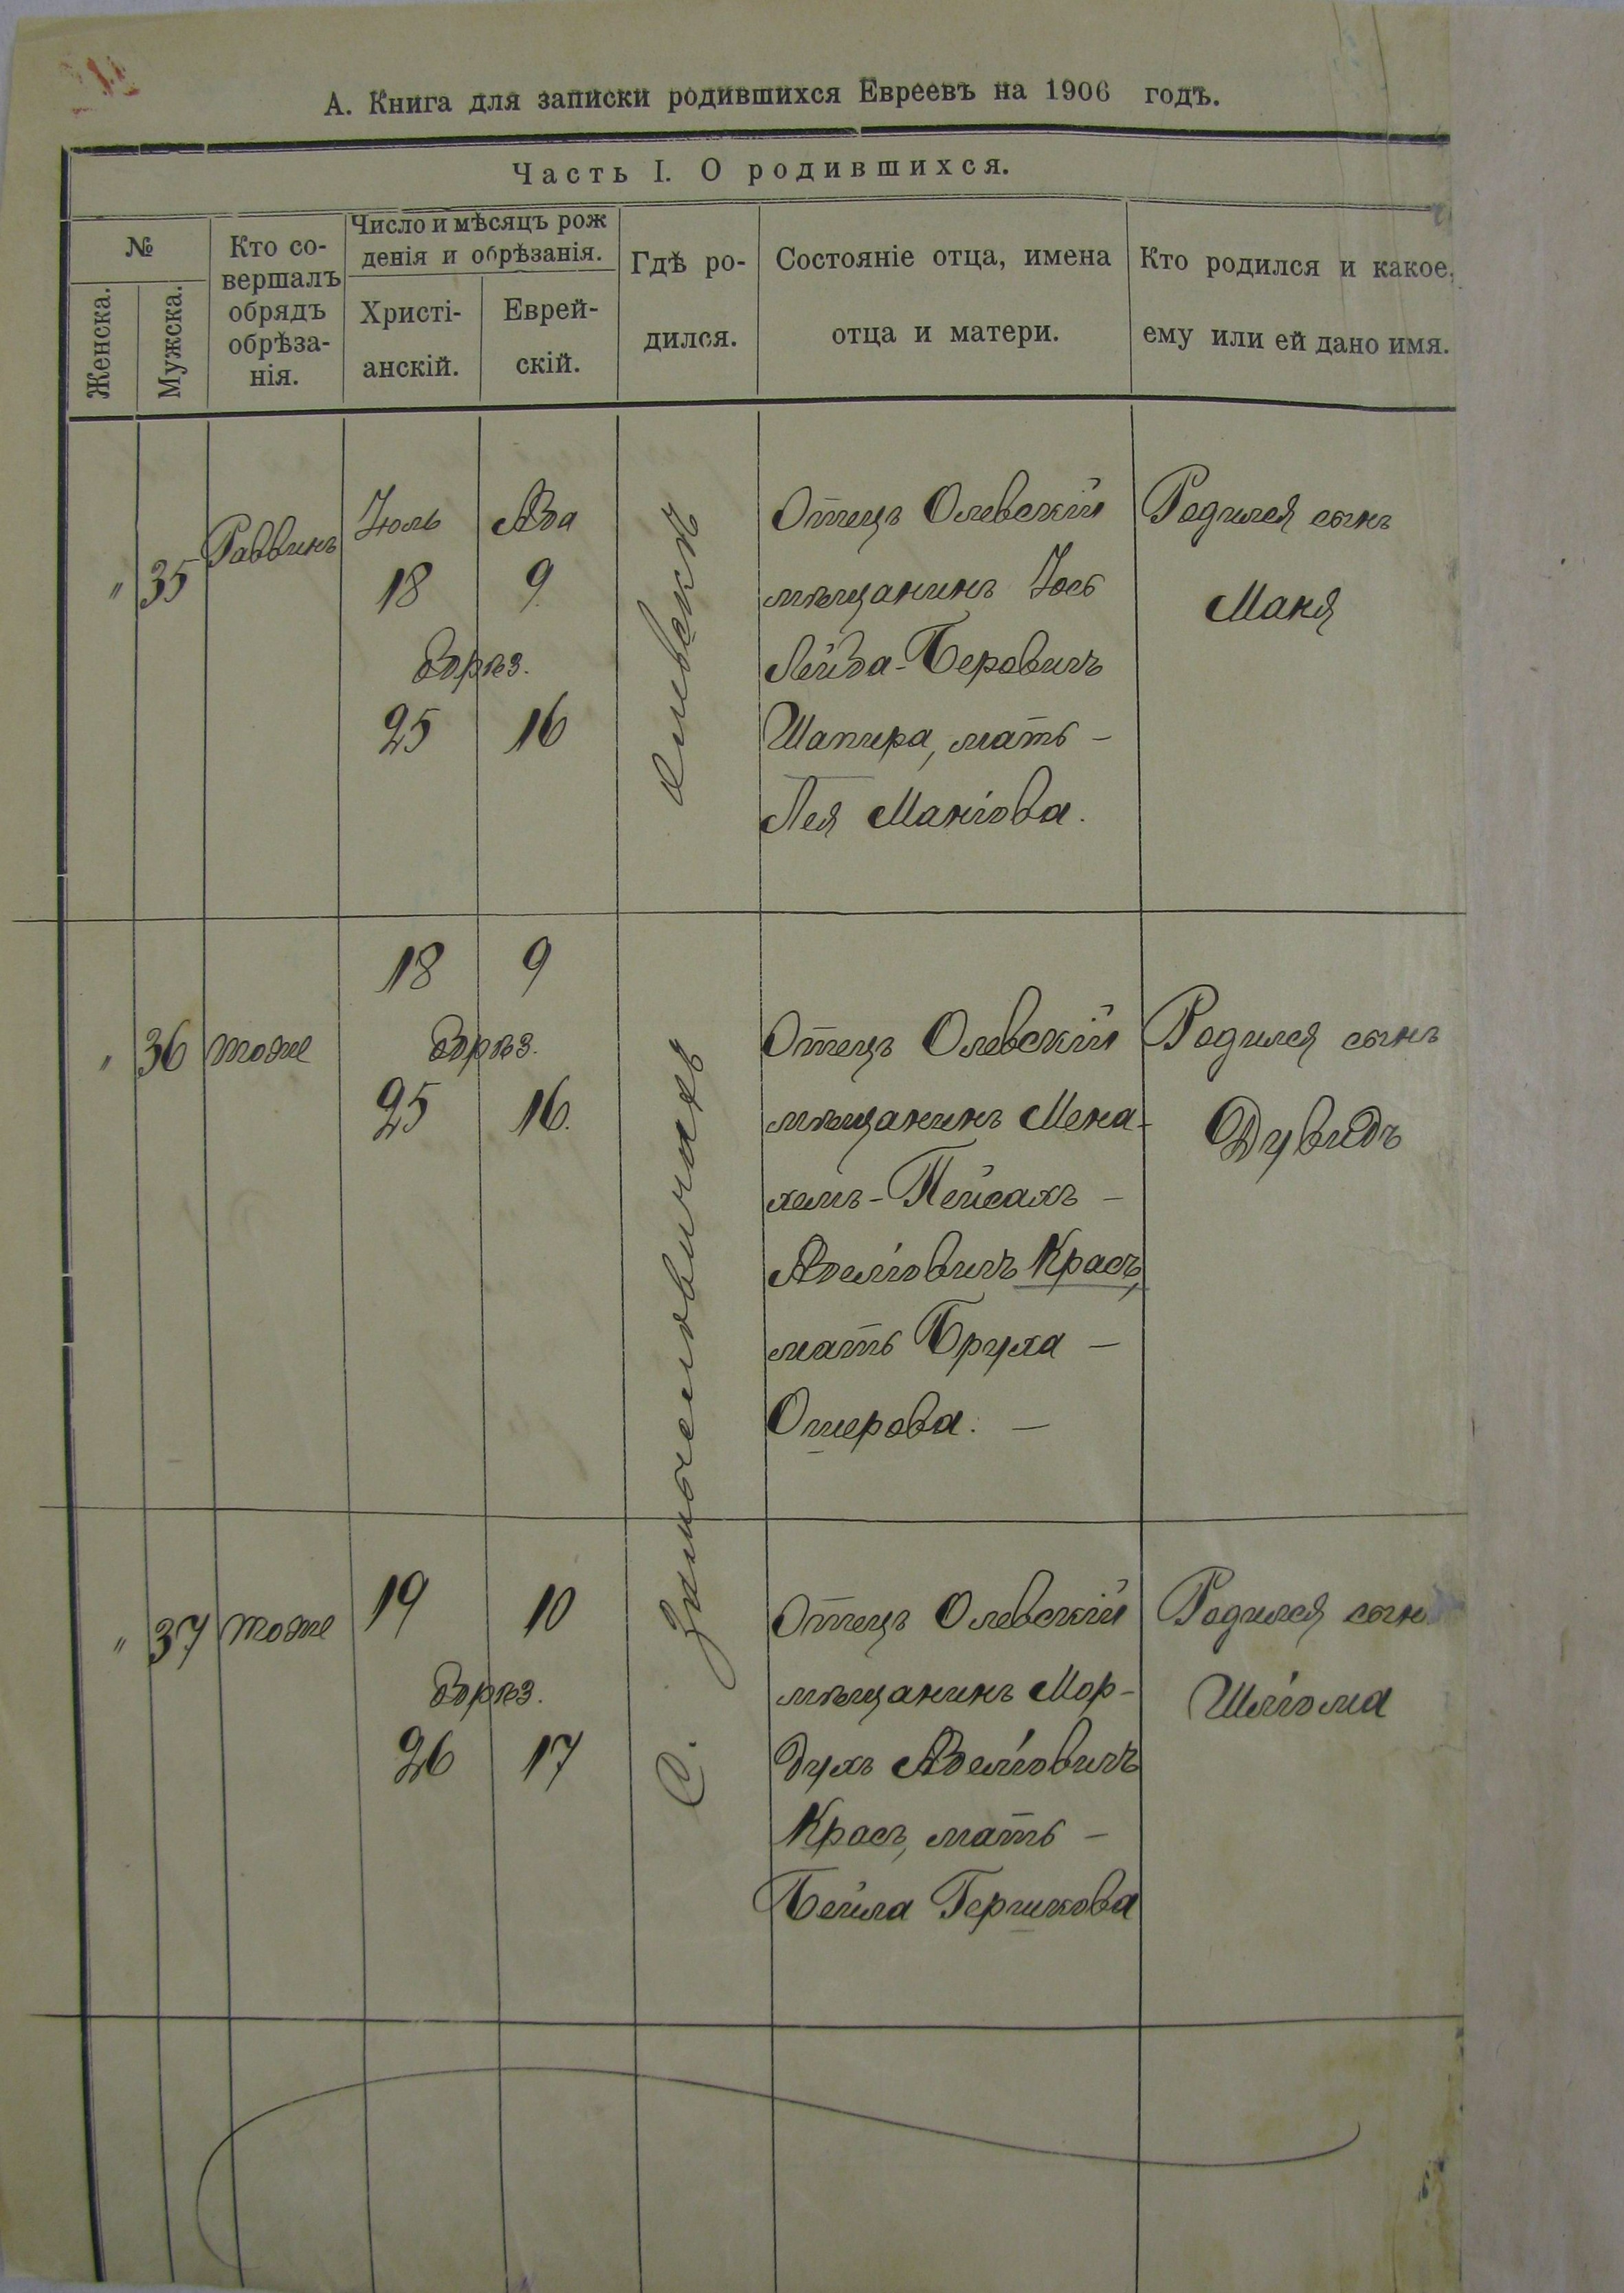 А. Книга для записки родившихся Евреевъ на 1906 годъ.
Часть I. О родившихся.
№
Женска.
Мужска.
Кто со-
вершалъ
обрядъ
обрѣза-
нія.
Число и мѣсяцъ рож
денія и обрѣзанія.
Христі-
анскій.
Еврей-
скій.
Гдѣ ро-
дился.
Состояніе отца, имена
отца и матери.
Кто родился и какое
ему или ей дано имя.
" 35
Раввинъ
Іюль Ава
18 9
Обрѣз.
25 16
Олевскѣ
Отецъ Олевскій
мѣщанинъ Іось
Лейба-Беровичъ
Шапира, мать –
Лея Маніова.
Родился сынъ
Маня
" 36 тоже
18 9
Обрѣз.
25 16.
С. Замысловичахъ
Отецъ Олевскій
мѣщанинъ Мена-
хемъ-Пейсахъ –
Абеліовичъ Красъ,
мать Бруха –
Ошерова. –
Родился сынъ
Дувидъ
" 37 тоже
19 10
Обрѣз.
26 17
Отецъ Олевскій
мѣщанинъ Мор-
духъ Абеліовичъ
Красъ, мать –
Бейла Гершкова
Родился сынъ
Шліома